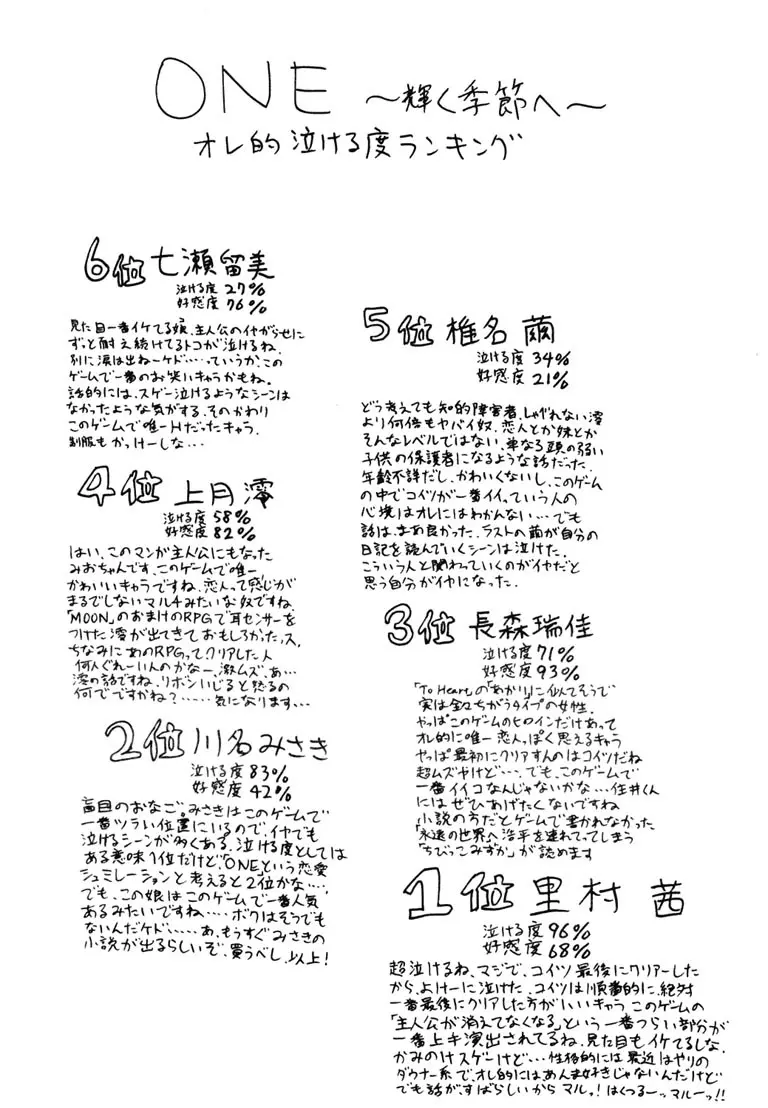 ONE ～輝く季節へ～
オレ的泣ける度ランキング
6位 七瀬留美
泣ける度 27%
好感度 76%
見た目一番イケてる娘、主人公のイヤがらせに
ずっと耐え続けてるトコが泣けるね、
別に涙は出ねーケド……っていうか、この
ゲームで一番のお笑いキャラかもね。
話的には、スゲー泣けるようなシーンは
なかったような気がする、そのかわり
このゲームで唯一Hだったキャラ、
制服もかっけーしな…
5位 椎名 繭
泣ける度 34%
好感度 21%
どう考えても知的障害者、しゃべれない澪
より何倍もヤバイ奴、恋人とか妹とか
そんなレベルではない、単なる頭の弱い
子供の保護者になるような話だった、
年齢不詳だし、かわいくないし、このゲーム
の中でコイツが一番イイっていう人の
心境はオレにはわかんない…でも
話は、まぁ良かった、ラストへ繭が自分の
日記を読んでいくシーンは泣けた、
こういう人と関わっていくのがイヤだと
思う自分がイヤになった、
4位 上月澪
泣ける度 58%
好感度 82%
はい、このマンガ主人公にもなった
みおちゃんです、このゲームで唯一
かわいいキャラですね、恋人って感じが
まるでしないマルチみたいな奴ですね、
「MOON」のおまけのRPGで耳センサーを
つけた澪が出てきておもしろかったっス、
ちなみにあのRPGってクリアした人
何人ぐれーいんのかなー、激ムズ、あ…
澪の話ですね、リボンいじると怒るの
何でですかね？……気になります…
3位 長森瑞佳
泣ける度 71%
好感度 93%
「To Heart」の「あかり」に似てそうで
実は全々ちがうタイプの女性、
やっぱこのゲームのヒロインだけあって
オレ的に唯一恋人っぽく思えるキャラ
やっぱ最初にクリアすんのはコイツだね
超ムズやけど…、でも、このゲームで
一番イイコなんじゃないかな…住井くん
にはぜひあげたくないですね
小説の方だとゲームで書かれなかった
「永遠の世界へ浩平を連れてってしまう
「ちびっこみずか」が読めます
2位 川名みさき
泣ける度 83%
好感度 42%
盲目のおなご、みさきはこのゲームで
一番ツラい位置にいるので、イヤでも
泣けるシーンが多くある、泣ける度としては
ある意味1位だけど、「ONE」という恋愛
シュミレーションと考えると2位かな…、
でも、この娘はこのゲームで一番人気
あるみたいですね…、ボクはそうでも
ないんだケド……あ、もうすぐみさきの
小説が出るらしいぞ、買うべし、以上！
1位 里村 茜
泣ける度 96%
好感度 68%
超泣けるね、マジで、コイツ最後にクリアーした
から、よけーに泣けた、コイツは順番的に、絶対
一番最後にクリアした方がいいキャラ このゲームの
「主人公が消えてなくなる」という一番つらい部分が
一番上手演出されてるね、見た目もイケてるしな、
かみのけスゲーけど…性格的には最近はやりの
ダウナー系で、オレ的にはあんま好きじゃないんだけど
でも話が、すばらしいからマルっ！はくつるーッマルーっ!!